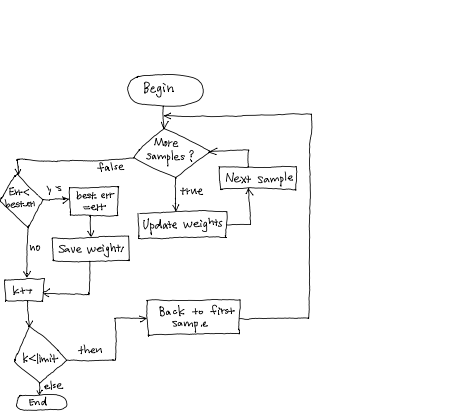 Begin
More
samples?
false
true
Next sample
Update weights
Err<
best.err
yes
best.err
=err
Save weights
no
k++
Back to first
sample
k<limit
then
else
End